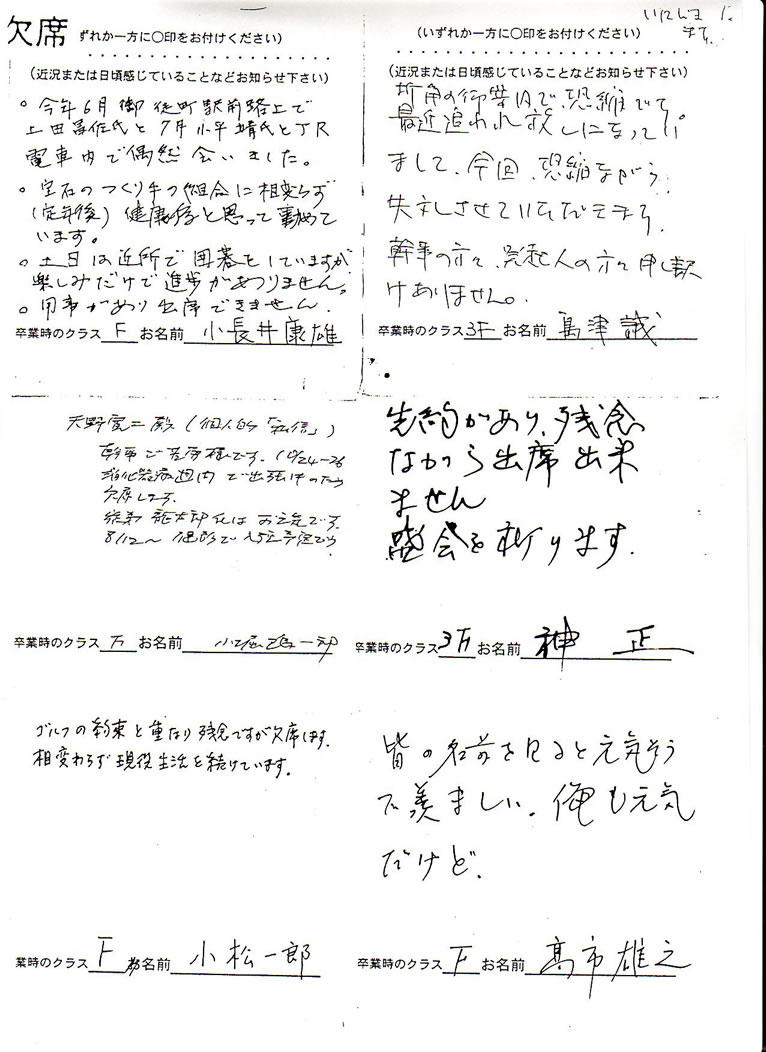 欠席 ずれか一方に〇印をお付けください)
(近況または日頃感じていることなどお知らせ下さい)
。今年6月御徒町駅前路上で
上田昌佐氏と7月小平靖氏とJR
電車内で偶然会いました。
。宝石のつくり手の組合に相変らず
(定年後)健康法と思って勤めて
います。
。土日は近所で囲碁をしていますが
楽しみだけで進歩がありません。
。用事があり出席できません.
卒業時のクラス F お名前 小長井康雄
(いずれか一方に〇印をお付けください)
(近況または日頃感じていることなどお知らせ下さい)
折角の御案内で、恐縮です
最近追われ放しになって
まして、今回、恐縮ながら
失礼させていただきます.
幹事の方々、発起人の方々申し訳
けありません。
卒業時のクラス 3F お名前 島津誠
天野寛二殿(個人的「私信」)
幹事ご苦労様です. (10/24-26
消化器病週間で出張中のため
欠席します.
お元気です.
卒業時のクラス F お名前 小
先約があり、残念
ながら出席出来
ません
盛会を祈ります.
卒業時のクラス 3F お名前 神 正
ゴルフの約束と重なり残念ですが欠席します.
相変わらず現役生活を続けています.
業時のクラス F お名前 小松一郎
皆の名前を見ると元気そう
で羨ましい. 俺も元気
だけど.
卒業時のクラス F お名前 高市雄之